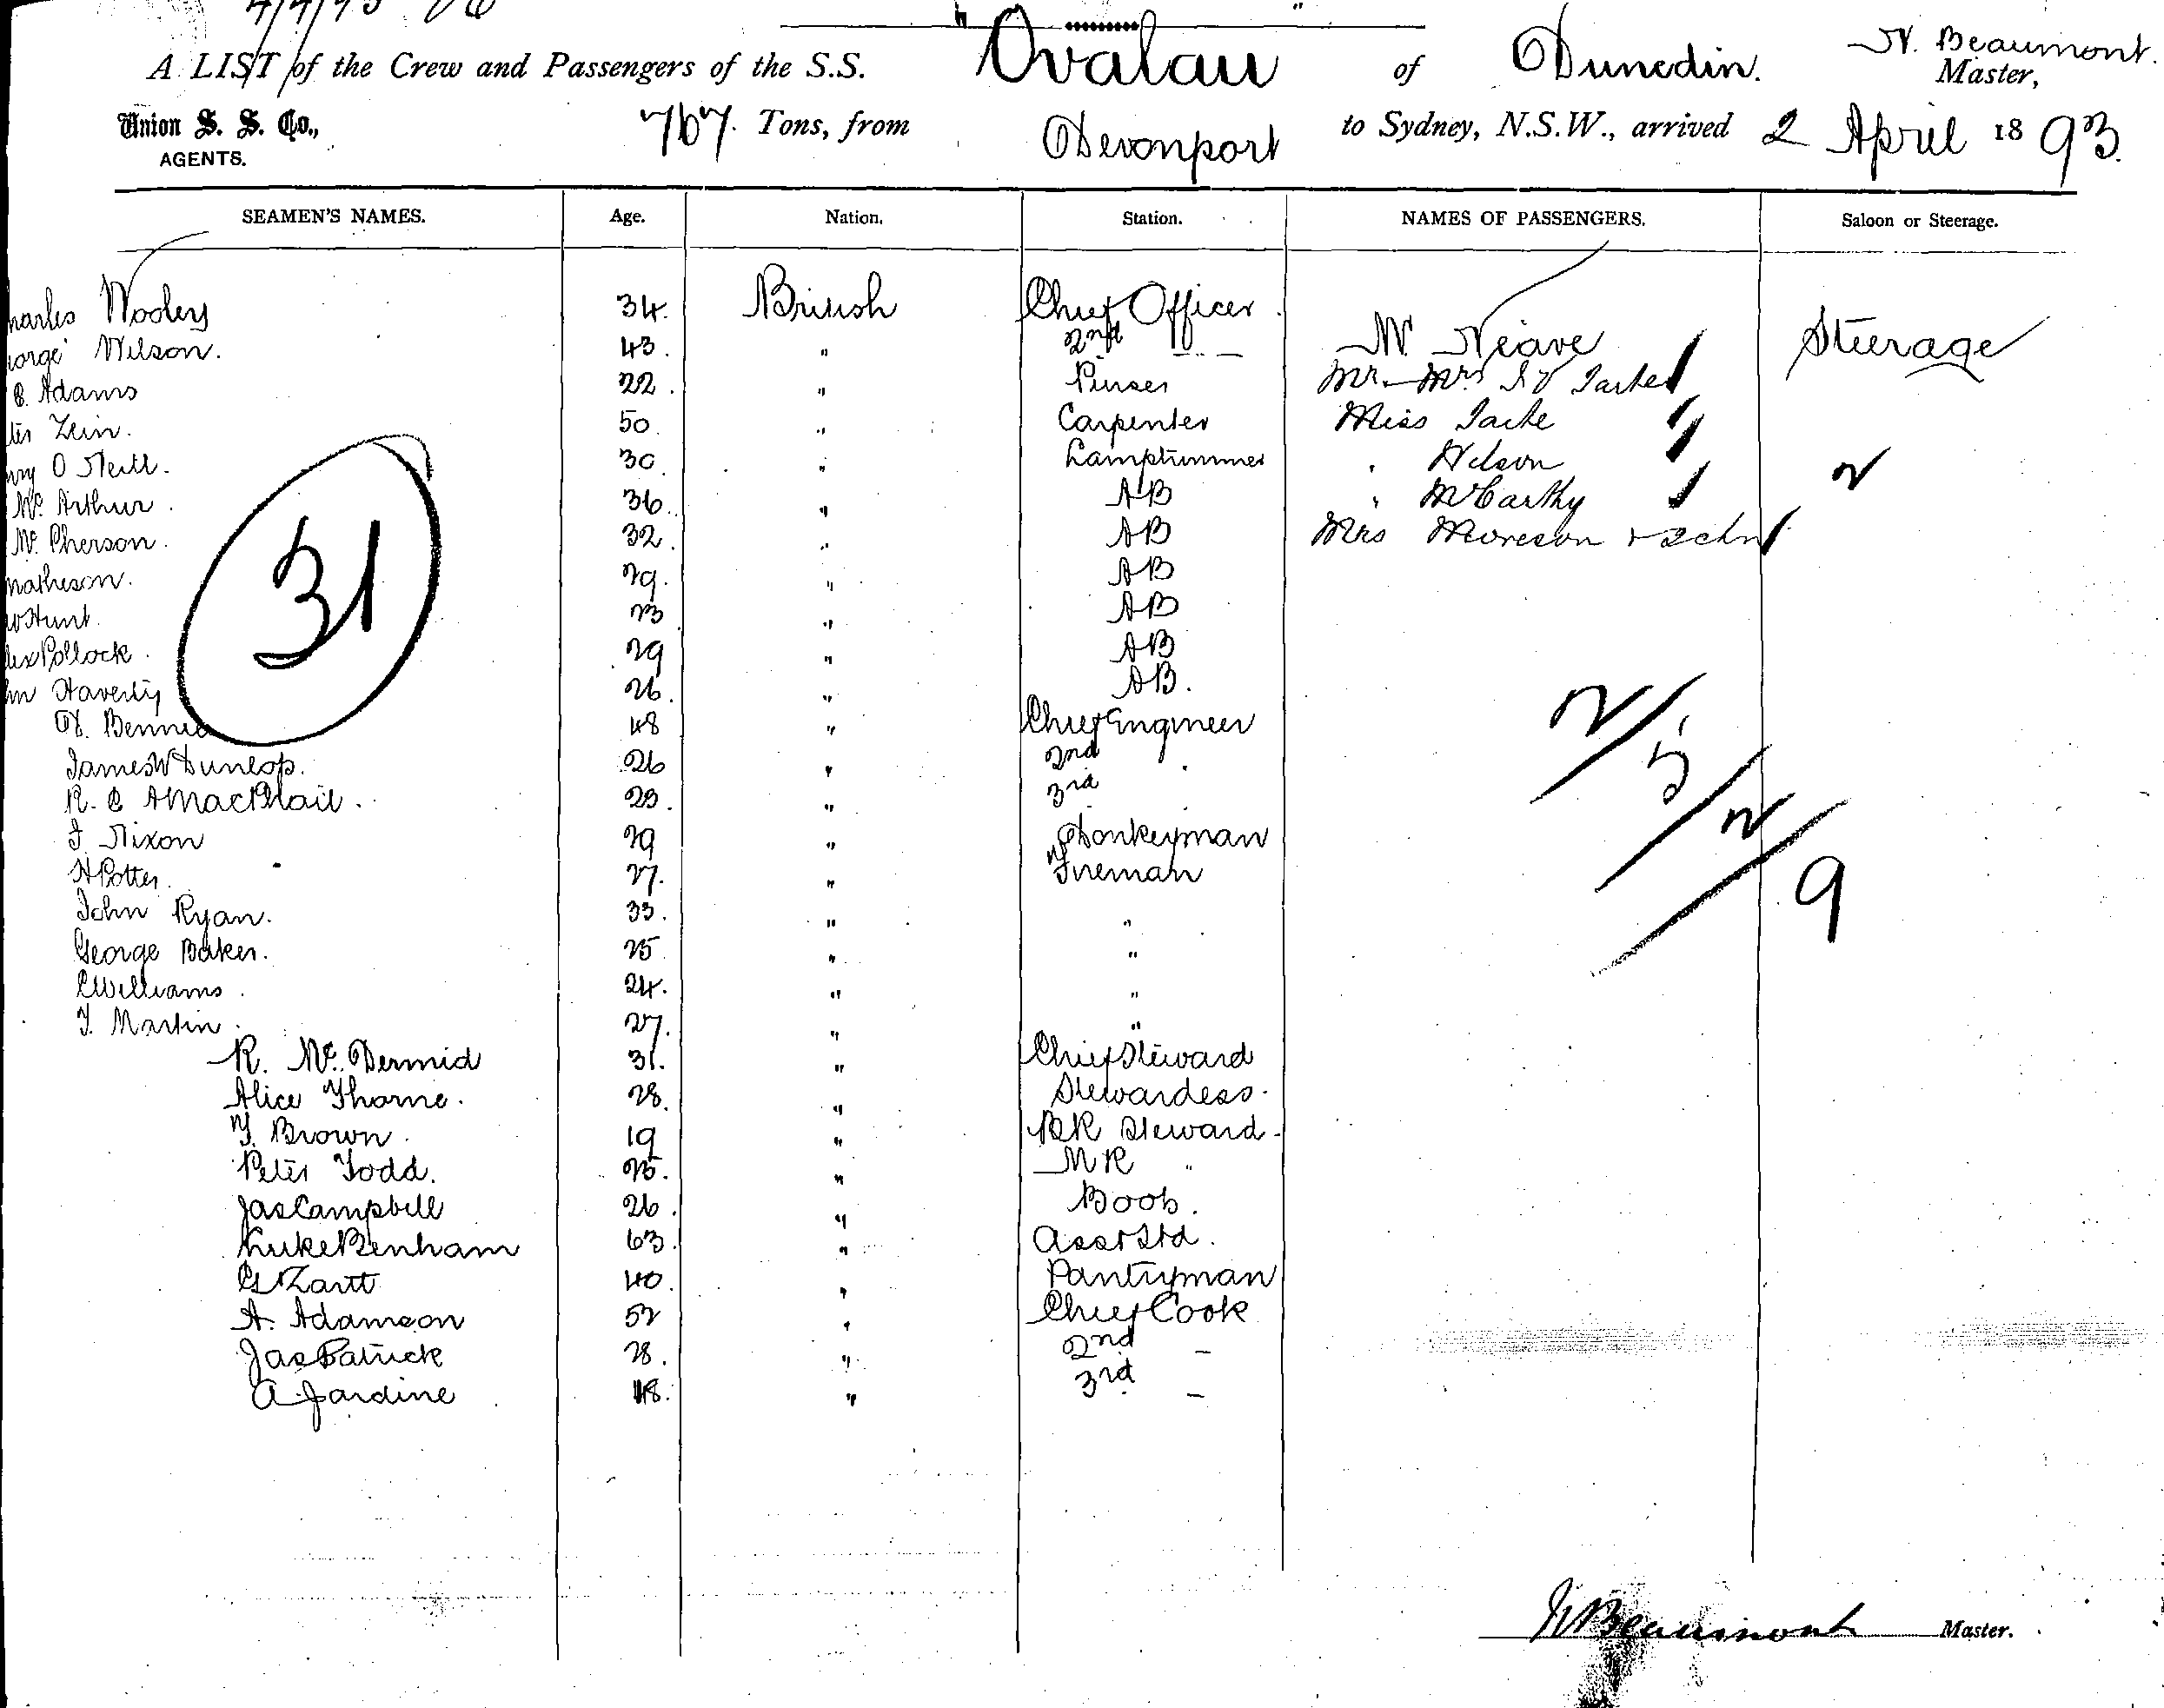 4/4/93
A LIST of the Crew and Passengers of the S.S. "Ovalau" of Dunedin. N. Beaumont. Master,
Union S. S. Co., AGENTS. 767 Tons, from Devonport to Sydney, N.S.W., arrived 2 April 1893.
SEAMEN'S NAMES. Age. Nation. Station. NAMES OF PASSENGERS. Saloon or Steerage.
harles Wooley 34. British Chief Officer
orge Wilson. 43. " 2nd — — M Neave Steerage
C. Adams 22. " Purser Mr Mrs
ter Zein. 50. " Carpenter Miss
nry O Neill. 30. " Lamptrimmer " Wilson
Mc Arthur. 36. " AB " McCarthy
Mc Pherson. 32. " AB Mrs Moreson + 2 chn
matheson. 29. " AB
Hunt. 23 " AB
lex Pollock. 29 " AB
hn Haverty 26. " AB.
31
D. Bennie 48 " Chief Engineer
James W Dunlop. 26 " 2nd "
R. C A MacPhail. 23. " 3rd
J. Nixon 29 " Donkeyman
H Potter. 27. " Fireman
John Ryan. 33. " "
George Baker. 25 " "
C Williams. 24. " "
T. Martin. 27. " "
R. Mc. Dermid 31. " Chief Steward
Alice Thorne. 28. " Stewardess.
T. Brown. 19 " BK Steward.
Peter Todd. 25. " MR "
Jas Campbell 26. " Boots.
Luke Benham 63. " Asst Std.
40. " Pantryman
A. Adamson 52 " Chief Cook
Jas Patrick 28. " 2nd —
A. Jardine 48. " 3rd —
2/5/2/9
N Beaumont Master.